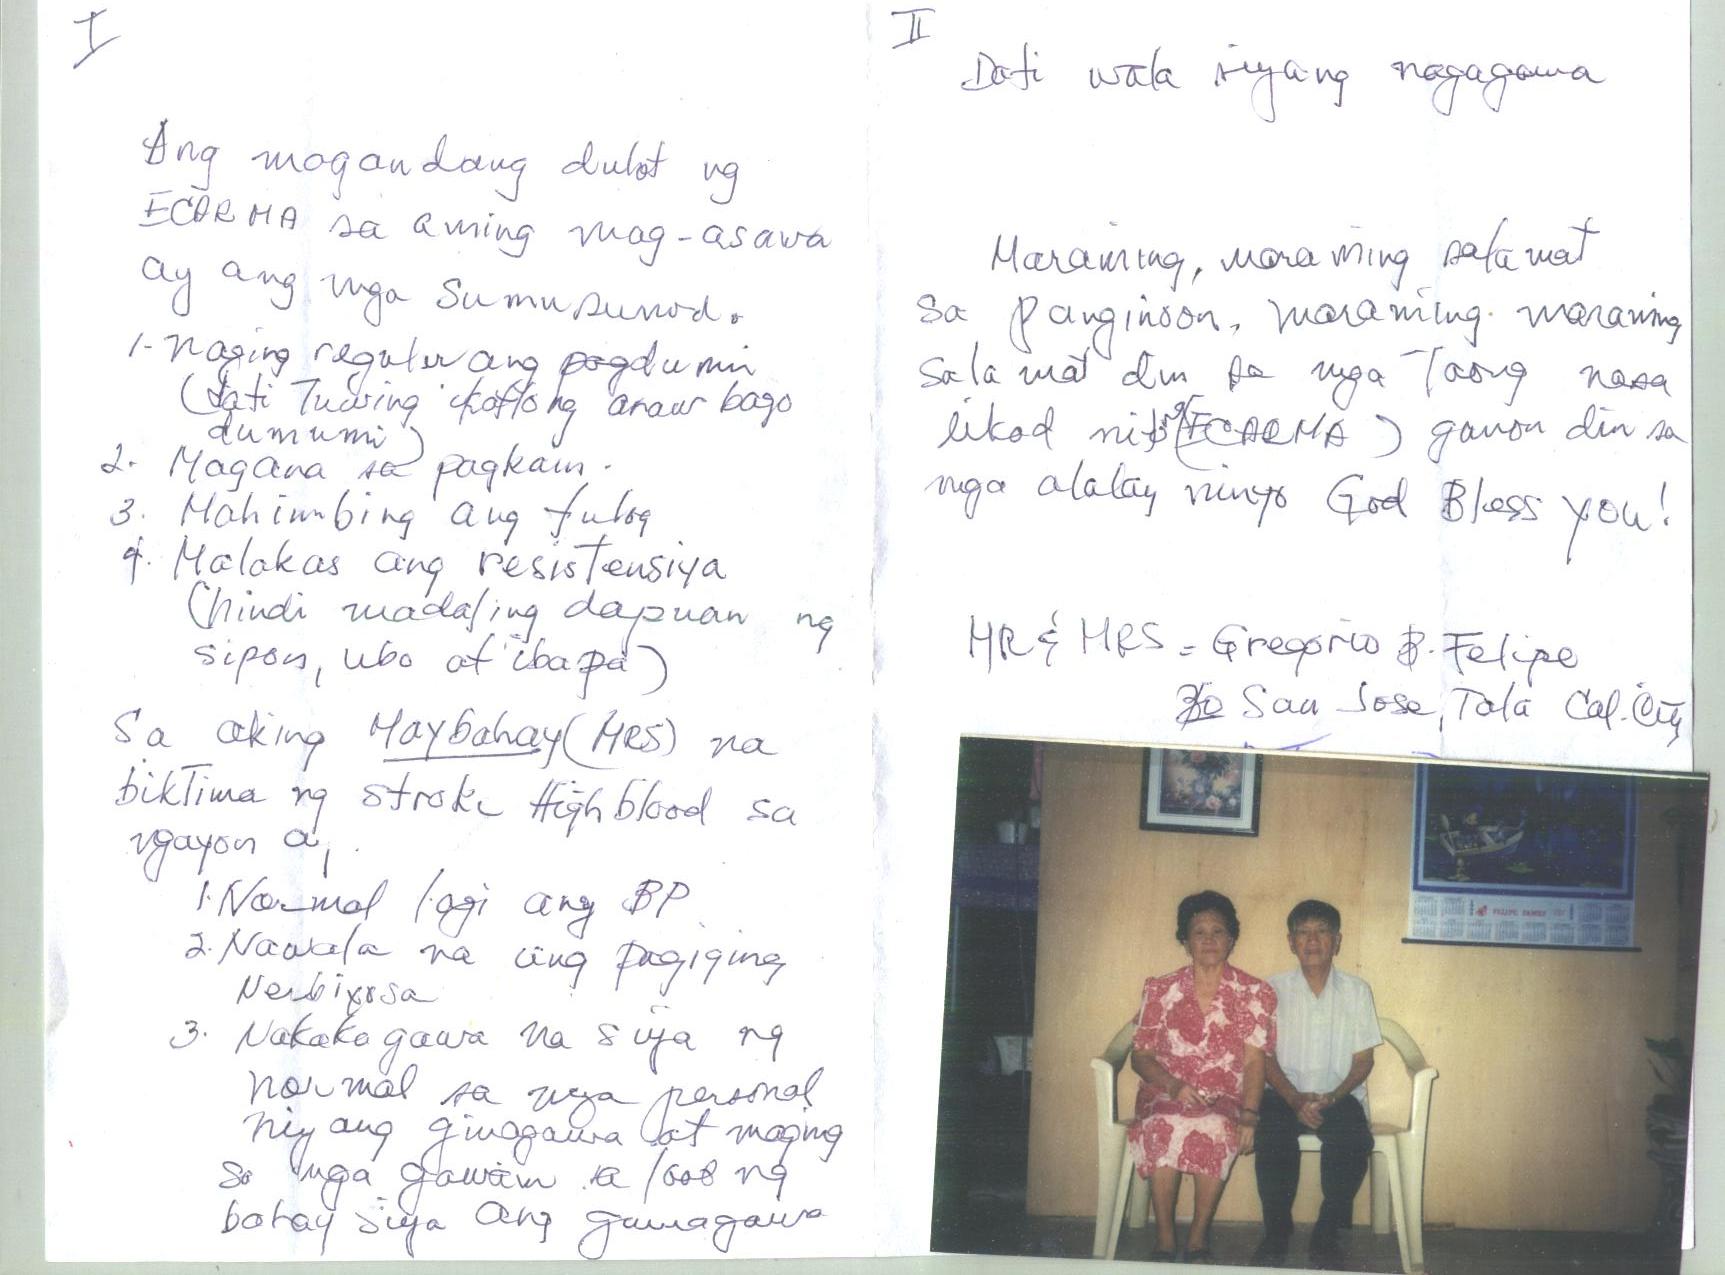 I
Ang magandang dulot ng
ECARMA sa aming mag-asawa
ay ang mga sumusunod.
1- Naging regular ang pagdumi
(dati Tuwing ikatlong araw bago
dumumi)
2. Magana sa pagkain.
3. Mahimbing ang tulog
4. Malakas ang resistensiya
(hindi madaling dapuan ng
sipon, ubo at iba pa)
Sa aking Maybahay (MRS) na
biktima ng stroke High blood sa
ngayon ay
1. Normal lagi ang BP
2. Nawala na ang pagiging
Nerbiyosa
3. Nakakagawa na siya ng
normal sa mga personal
niyang ginagawa at maging
sa mga gawain sa loob ng
bahay siya ang gumagawa
II
Dati wala siyang nagagawa
Maraming, maraming salamat
sa Panginoon, maraming maraming
salamat din sa mga Taong nasa
likod nitong (ECARMA) ganon din sa
mga alalay ninyo God Bless you!
MR & MRS - Gregorio B. Felipe
San Jose, Tala Cal. City
FELIPE FAMILY